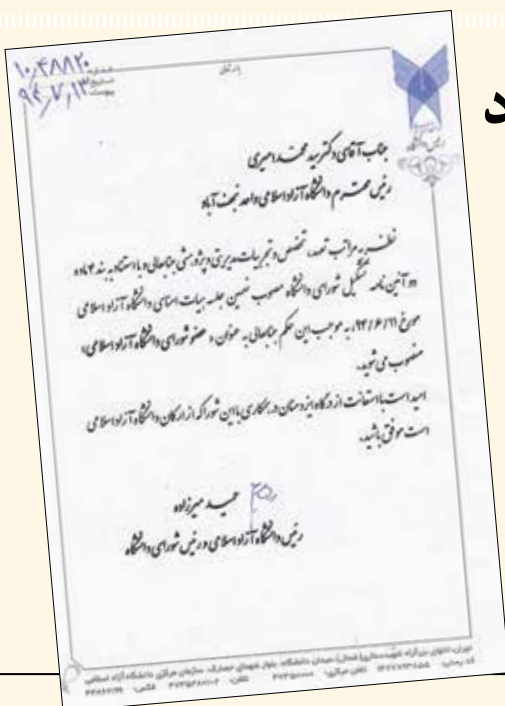 د
شماره ۱۰,۴۸۸۲۰
تاریخ ۹۴,۷,۱۳
پیوست
جناب آقای دکتر سید محمد امیری
رئیس محترم دانشگاه آزاد اسلامی واحد نجف آباد
نظر به مراتب تعهد، تخصص و تجربیات مدیریتی و پژوهشی جنابعالی و با استناد به بند ۴ ماده
آئین نامه تشکیل شورای دانشگاه مصوب جلسه هیات امنای دانشگاه آزاد اسلامی
مورخ به موجب این حکم جنابعالی به عنوان « عضو شورای دانشگاه آزاد اسلامی»
منصوب می شوید.
امید است با استعانت از درگاه ایزد منان در همکاری با این شورا که از ارکان دانشگاه آزاد اسلامی
است موفق باشید.
حمید میرزاده
رئیس دانشگاه آزاد اسلامی و رئیس شورای دانشگاه